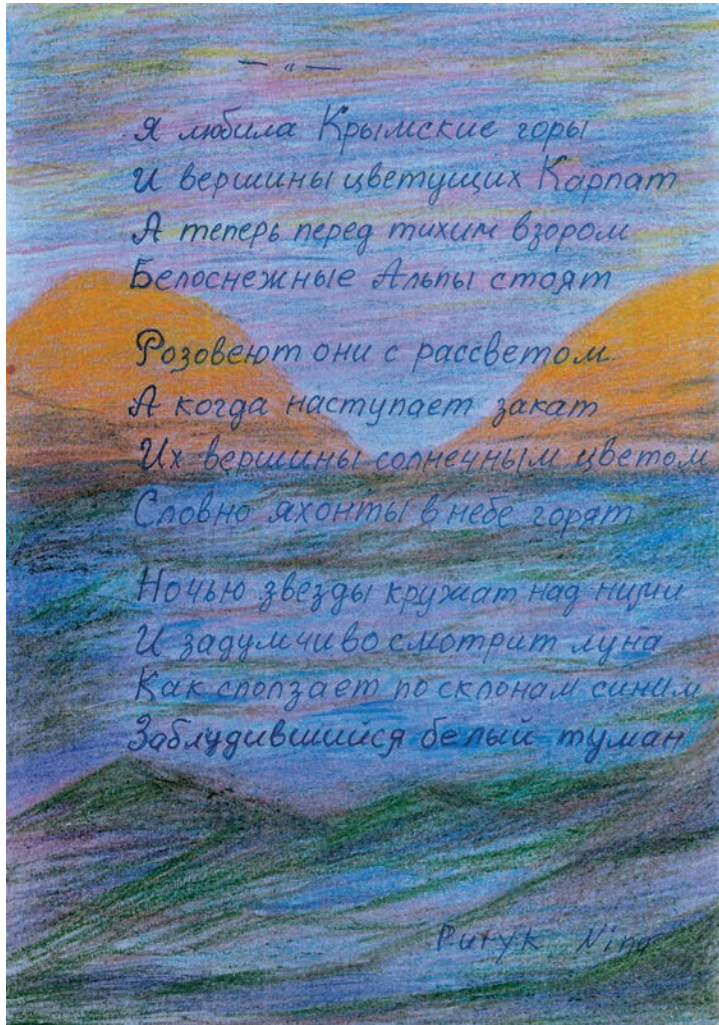 — " —
Я любила Крымские горы
И вершины цветущих Карпат
А теперь перед тихим взором
Белоснежные Альпы стоят
Розовеют они с рассветом
А когда наступает закат
Их вершины солнечным цветом
Словно яхонты в небе горят
Ночью звезды кружат над ними
И задумчиво смотрит луна
Как сползает по склонам синим
Заблудившийся белый туман
Nina